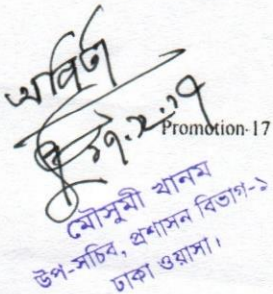 Promotion-17
মৌসুমী খানম
উপ-সচিব, প্রশাসন বিভাগ-১
ঢাকা ওয়াসা।